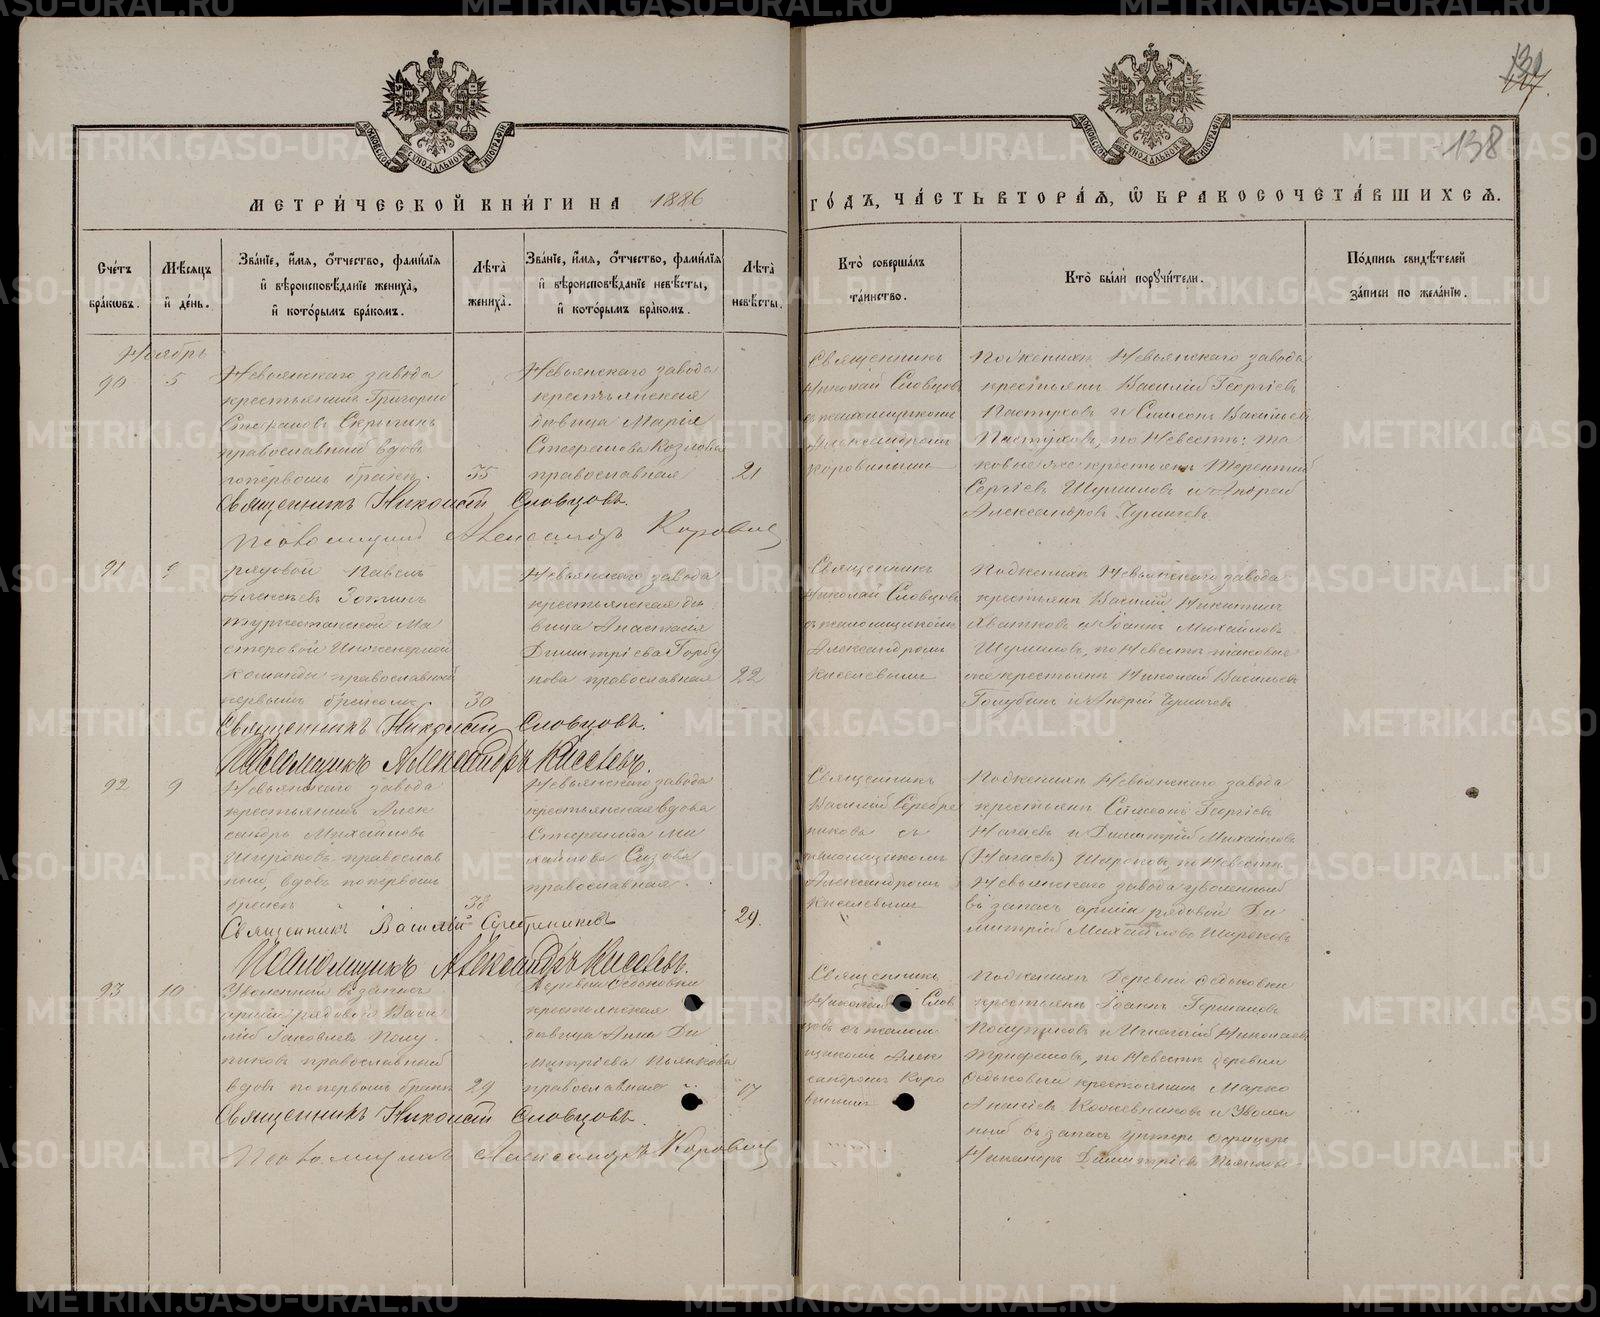 138
МЕТРИ́ЧЕСКОЙ КНИ́ГИ НА 1886
ГО́ДЪ, ЧА́СТЬ ВТОРА́Я, Ѡ҆ БРАКОСОЧЕТА́ВШИХСЯ.
Сче́тъ бра́кѡвъ.
Мѣ́сяцъ и҆ де́нь.
Зва́нїе, и҆́мя, ѻ҆́тчество, фами́лїя
и҆ вѣроисповѣ́данїе жениха̀,
и҆ кото́рымъ бра́комъ.
Лѣта̀ жениха̀.
Зва́нїе, и҆́мя, ѻ҆́тчество, фами́лїя
и҆ вѣроисповѣ́данїе невѣ́сты,
и҆ кото́рымъ бра́комъ.
Лѣта̀ невѣ́сты.
Кто̀ соверша́лъ та́инство.
Кто̀ бы́ли порꙋчи́тели.
По́дпись свидѣ́телей за́писи по жела́нїю.
Ноябрь
90
5
Невьянскаго завода
крестьянинъ Григорий
Стефановъ
православный вдовъ
35
Невьянскаго завода
крестьянская
дѣвица Марія
Стефанова Козлова
православная
21
Священникъ
Николай Словцовъ
съ псаломщикомъ
Александромъ
Коровинымъ
По женихѣ Невьянскаго завода
крестьяне Василій Георгіевъ
Пастуховъ и Симеонъ Васильевъ
Пастуховъ, по невѣстѣ: та
ковые же крестьяне Терентий
Сергіевъ Шумиловъ и Андрей
Александровъ
Священникъ Николай Словцовъ.
Псаломщикъ Александръ Коровинъ
91
9
рядовой Павелъ
Алексѣевъ
туркестанской Ма
стеровой Инженерной
Команды православный
первымъ бракомъ
30
Невьянскаго завода
крестьянская дѣ
вица Анастасія
Димитріева Горбу
нова православная
22
Священникъ
Николай Словцовъ
съ псаломщикомъ
Александромъ
Киселевымъ
По женихѣ Невьянскаго завода
крестьяне Василій Никитинъ
и Іоаннъ Михайловъ
Шумиловъ, по невѣстѣ таковые
же крестьяне Николай Васильевъ
Голубевъ и Андрей
Священникъ Николай Словцовъ.
Псаломщикъ Александръ Киселевъ.
92
9
Невьянскаго завода
крестьянинъ Алек
сандръ Михайловъ
Широковъ православ
ный, вдовъ по первомъ
бракѣ
38
Невьянскаго завода
крестьянская вдова
Стефанида Ми
хайлова Сизова
православная.
29.
Священникъ
Василій Серебре
никовъ съ
псаломщикомъ
Александромъ
Киселевымъ
По женихѣ Невьянскаго завода
крестьяне Симеонъ Георгіевъ
и Димитрій Михайловъ
Широковъ, по невѣстѣ
Невьянскаго завода уволенный
въ запасъ арміи рядовой Ди
митрій Михайловъ Широковъ
Священникъ Василій Серебрениковъ
Псаломщикъ Александръ Киселевъ.
93
10
Уволенный въ запасъ
арміи рядовой Васи
лій Іаковлевъ Полу
яновъ православный
вдовъ по первомъ бракѣ
29
Деревни Ѳедьковки
крестьянская
дѣвица Анна Ди
митріева Пьянкова
православная
17
Священникъ
Николай Слов
цовъ съ псалом
щикомъ Алек
сандромъ Коро
винымъ
По женихѣ Деревни Ѳедьковки
крестьяне Іоаннъ Германовъ
и Игнатій Николаевъ
Трифановъ, по невѣстѣ деревни
Ѳедьковки крестьянинъ Марко
Ананіевъ Кожевниковъ и Уволен
ный въ запасъ унтеръ офицеръ
Никаноръ Димитріевъ Пьянковъ
Священникъ Николай Словцовъ.
Псаломщикъ Александръ Коровинъ
METRIKI.GASO-URAL.RU